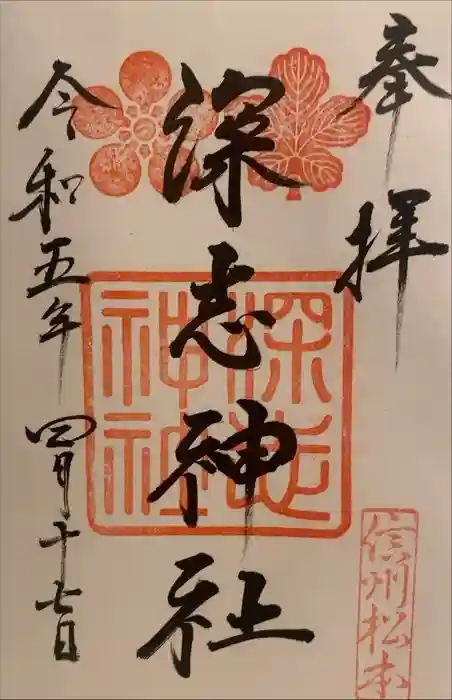 奉拝
深志神社
深志神社
令和五年四月十七日
信州松本